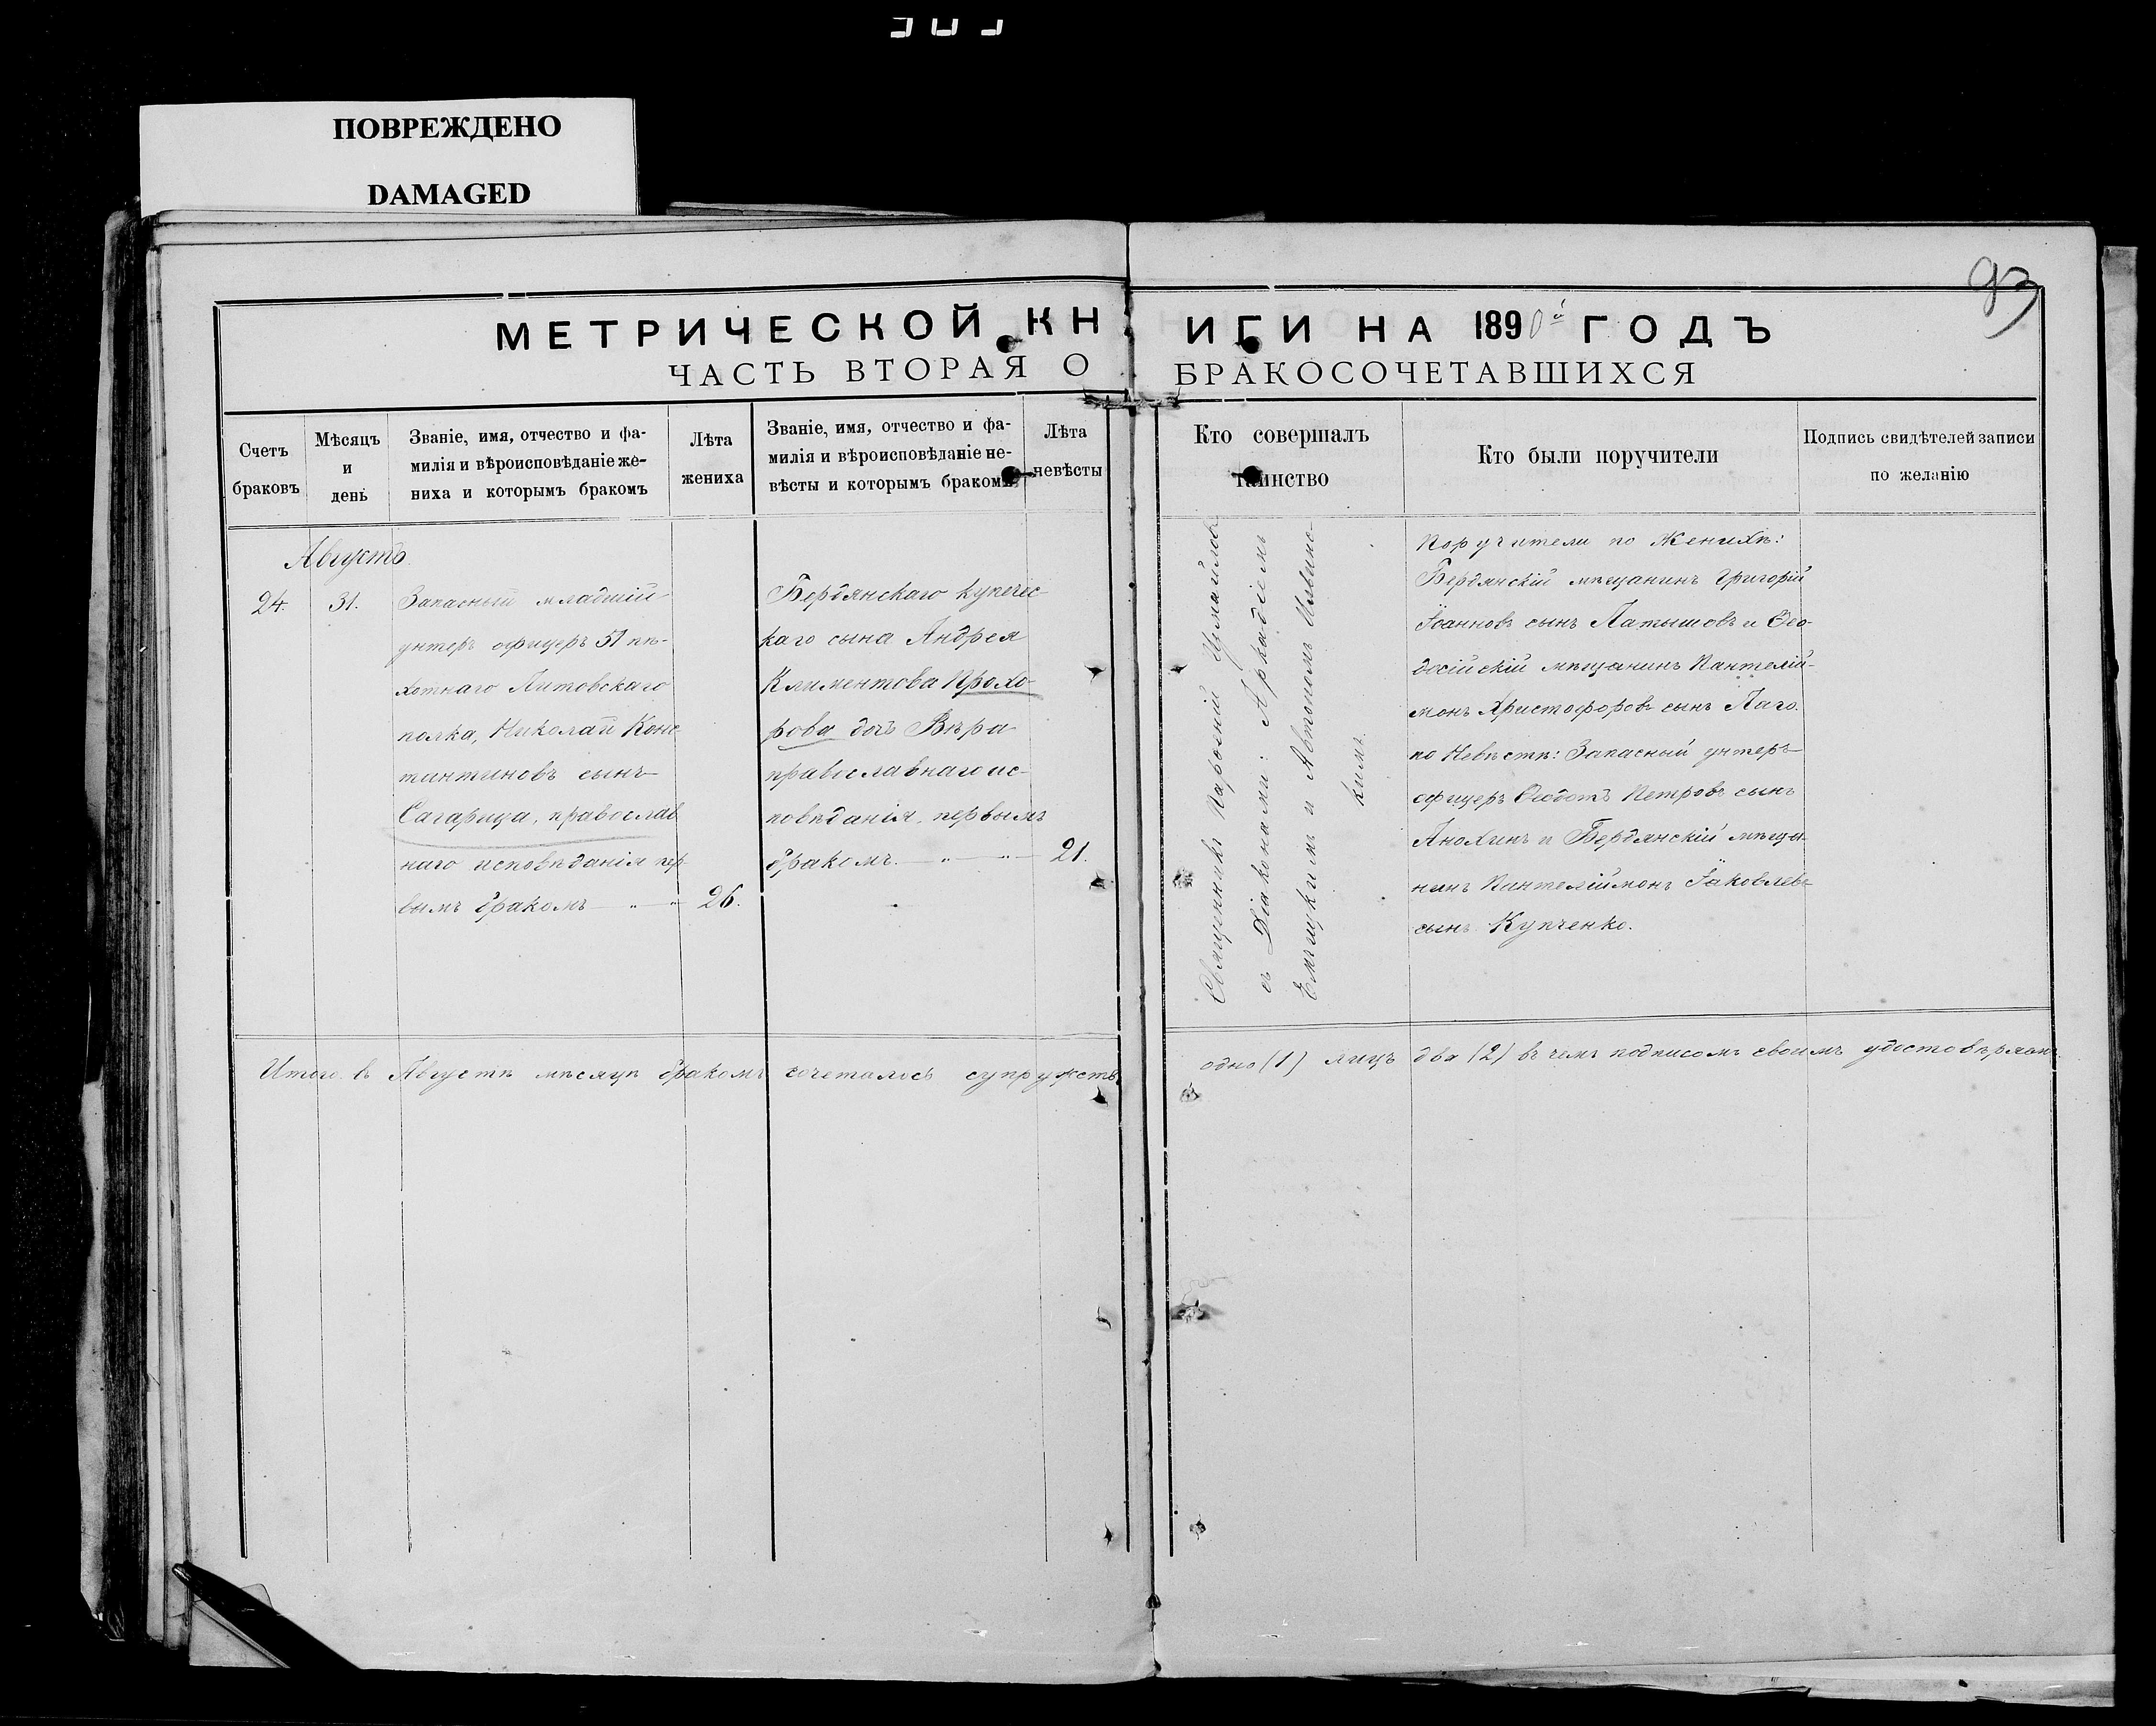 ПОВРЕЖДЕНО
DAMAGED
93
МЕТРИЧЕСКОЙ КНИГИ НА 1890й ГОДЪ
ЧАСТЬ ВТОРАЯ О БРАКОСОЧЕТАВШИХСЯ
Счетъ
браковъ
Мѣсяцъ
и
день
Званіе, имя, отчество и фа-
милія и вѣроисповѣданіе же-
ниха и которымъ бракомъ
Лѣта
жениха
Званіе, имя, отчество и фа-
милія и вѣроисповѣданіе не-
вѣсты и которымъ бракомъ
Лѣта
невѣсты
Кто совершалъ
таинство
Кто были поручители
Подпись свидѣтелей записи
по желанію
Августъ.
24.
31.
Запасный младшій
унтеръ офицеръ 51 пѣ-
хотнаго Литовскаго
полка, Николай Конс
тантиновъ сынъ
Сагарица, православ
наго исповѣданія пер-
вымъ бракомъ — „ — „
26.
Бердянскаго купечес-
каго сына Андрея
Климентова Прохо-
рова дочь Вѣра
православнаго ис-
повѣданія, первымъ
бракомъ. — „ — „ —
21.
Священникъ Парѳеній
съ Діаконами: Аркадіемъ
и Автономъ
кимъ.
Поручители по Женихѣ:
Бердянскій мѣщанинъ Григорій
Іоанновъ сынъ Латышовъ и Ѳео-
досійскій мѣщанинъ Пантелій-
монъ Христофоровъ сынъ Лаго.
по Невѣстѣ: Запасный унтеръ-
офицеръ Ѳедотъ Петровъ сынъ
Анохинъ и Бердянскій мѣща-
нинъ Пантелiймонъ Іаковлевъ
сынъ Купченко.
Итого въ Августѣ мѣсяцѣ бракомъ сочеталось супружествъ одно (1) лицъ два (2) въ чемъ подписомъ своимъ удостовѣряемъ.